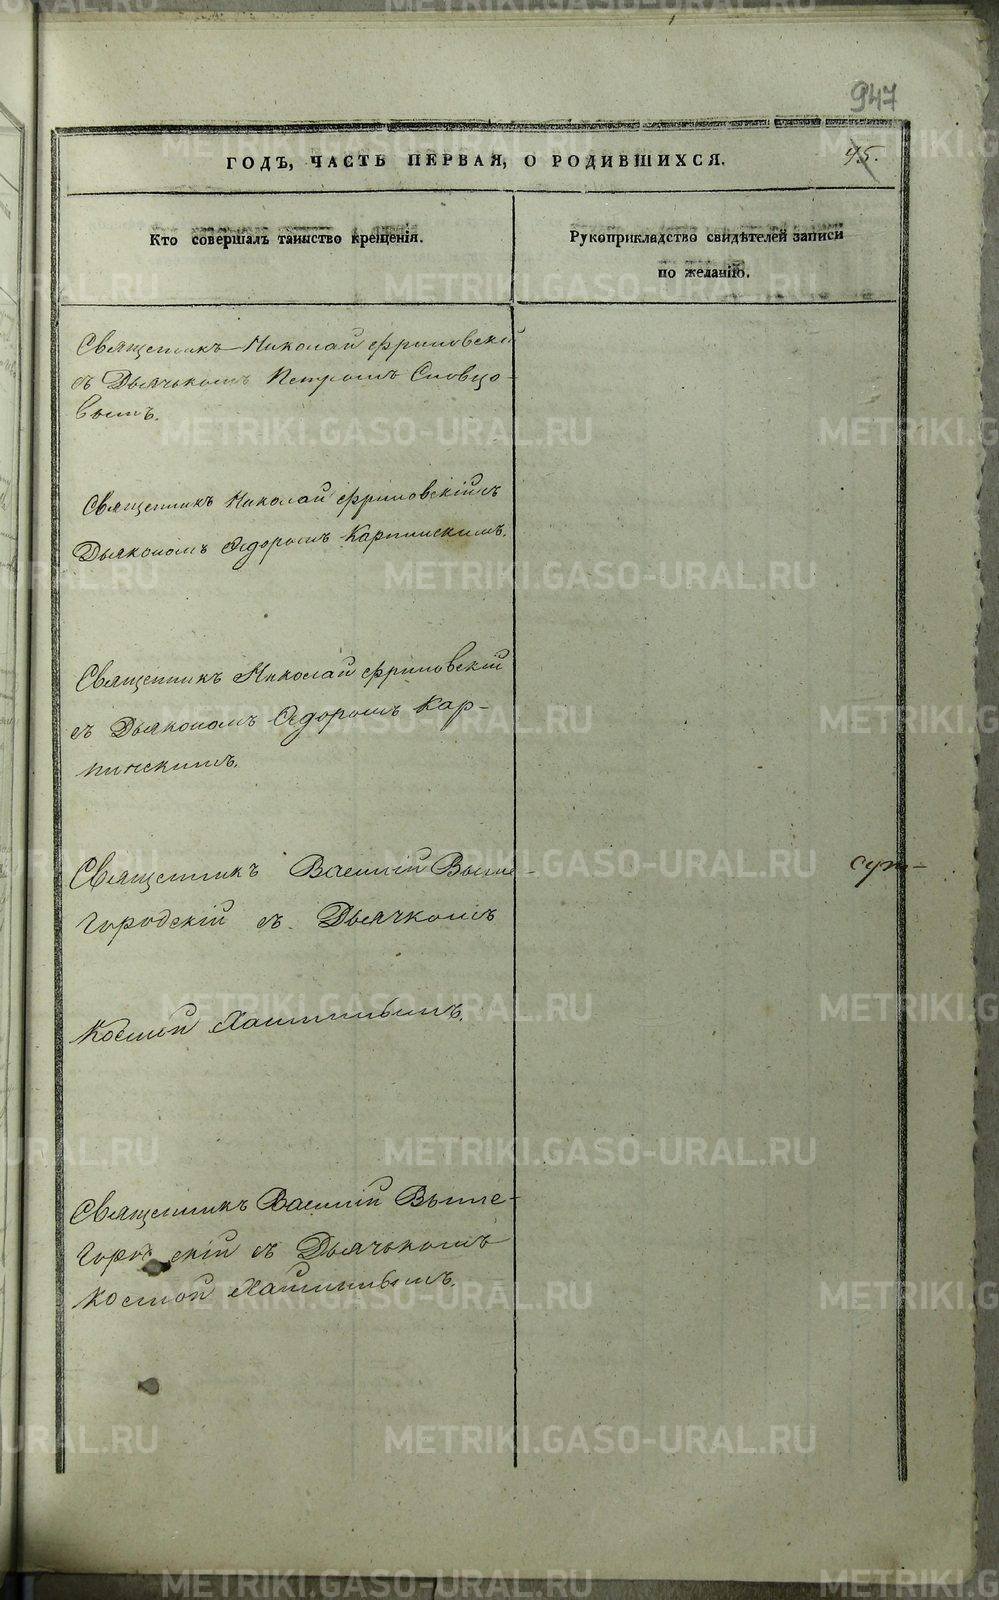 947
ГОДЪ, ЧАСТЬ ПЕРВАЯ, О РОДИВШИХСЯ.
45.
Кто совершалъ таинство крещенія.
Рукоприкладство свидѣтелей записи
по желанію.
Священникъ Николай Фриловскій
съ Дьячькомъ Петромъ Словцо-
вымъ.
Священникъ Николай Фриловскій съ
Дьякономъ Ѳедоромъ Карпинскимъ.
Священникъ Николай Фриловскій
съ Дьякономъ Ѳедоромъ Кар-
пинскимъ.
Священникъ Василій Выше-
городскій съ Дьячкомъ
Космой
Священникъ Василій Выше-
городскій съ Дьячькомъ
Космой
METRIKI.GASO-URAL.RU